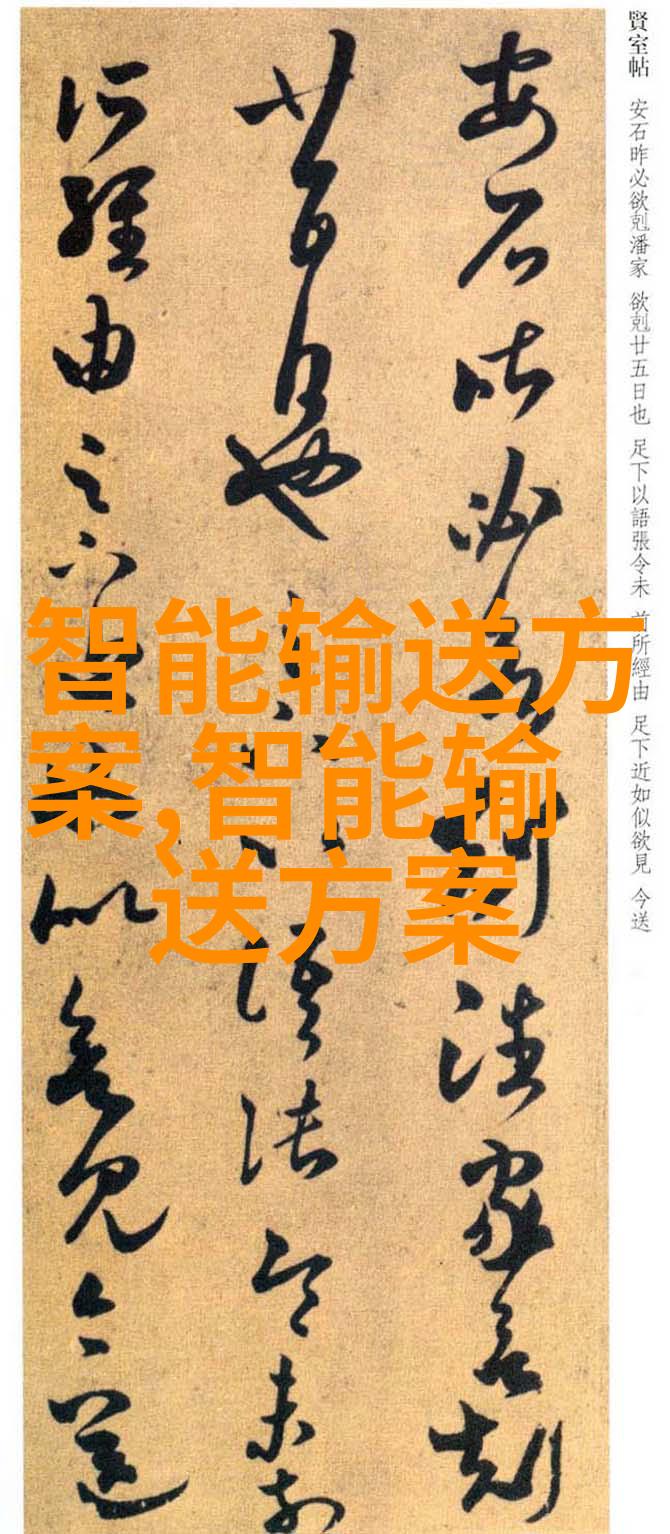 賢室帖 安石昨必欲剋潘家 欲剋廿五日也 足下以語張令未 前所經由 足下近如似欲見 今送
安石昨必欲剋潘家欲剋
廿五日也足下以語張令未前
所經由足下近如似欲見今送
智能输送方
案,智能输
送方案